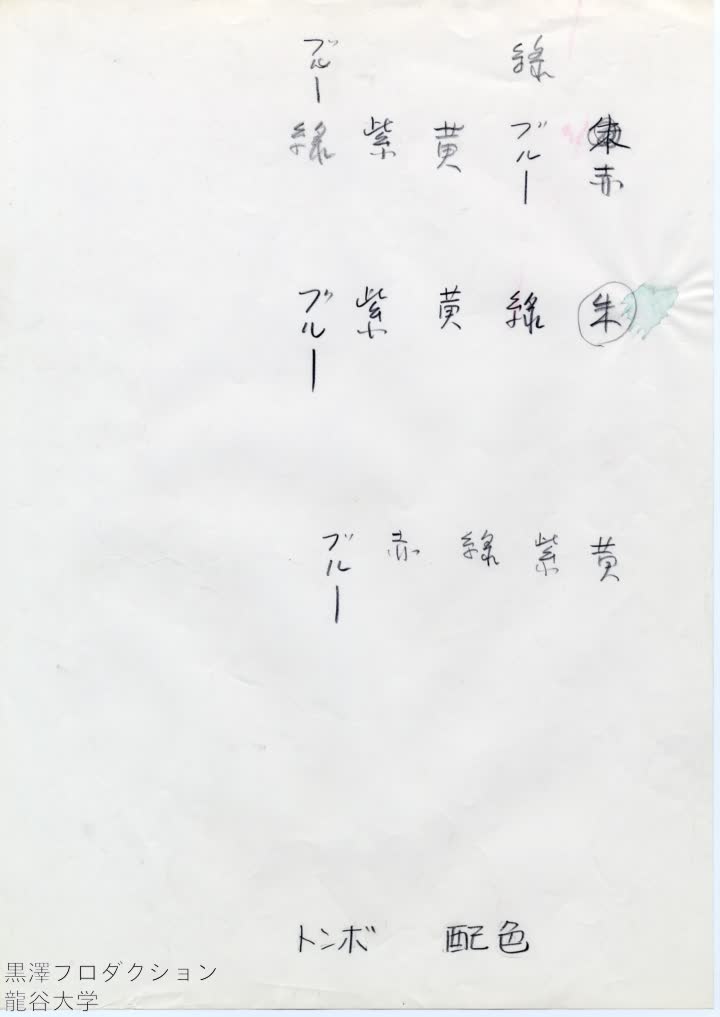 緑
ブルー
赤
ブルー
黄
紫
緑
朱
緑
黄
紫
ブルー
黄
紫
緑
赤
ブルー
トンボ 配色
黒澤プロダクション
龍谷大学